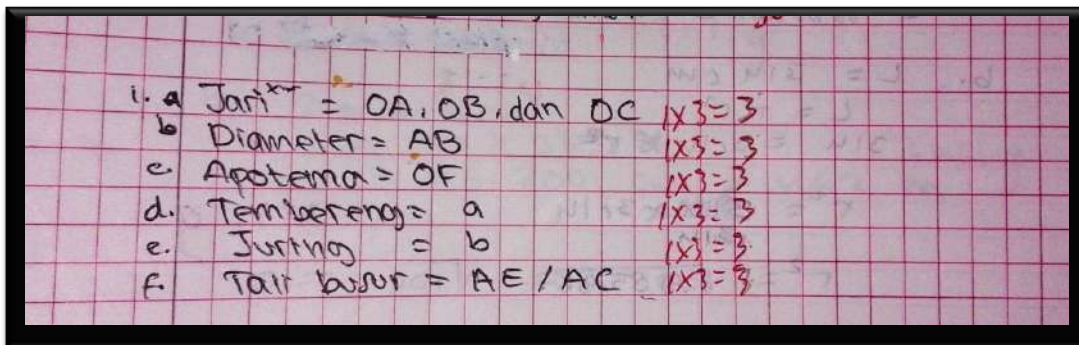 1. a Jari²⁻ = OA, OB, dan OC 1x3=3
b Diameter = AB 1x3=3
c. Apotema = OF 1x3=3
d. Tembereng = a 1x3=3
e. Juring = b 1x3=3
f. Tali busur = AE / AC 1x3=3